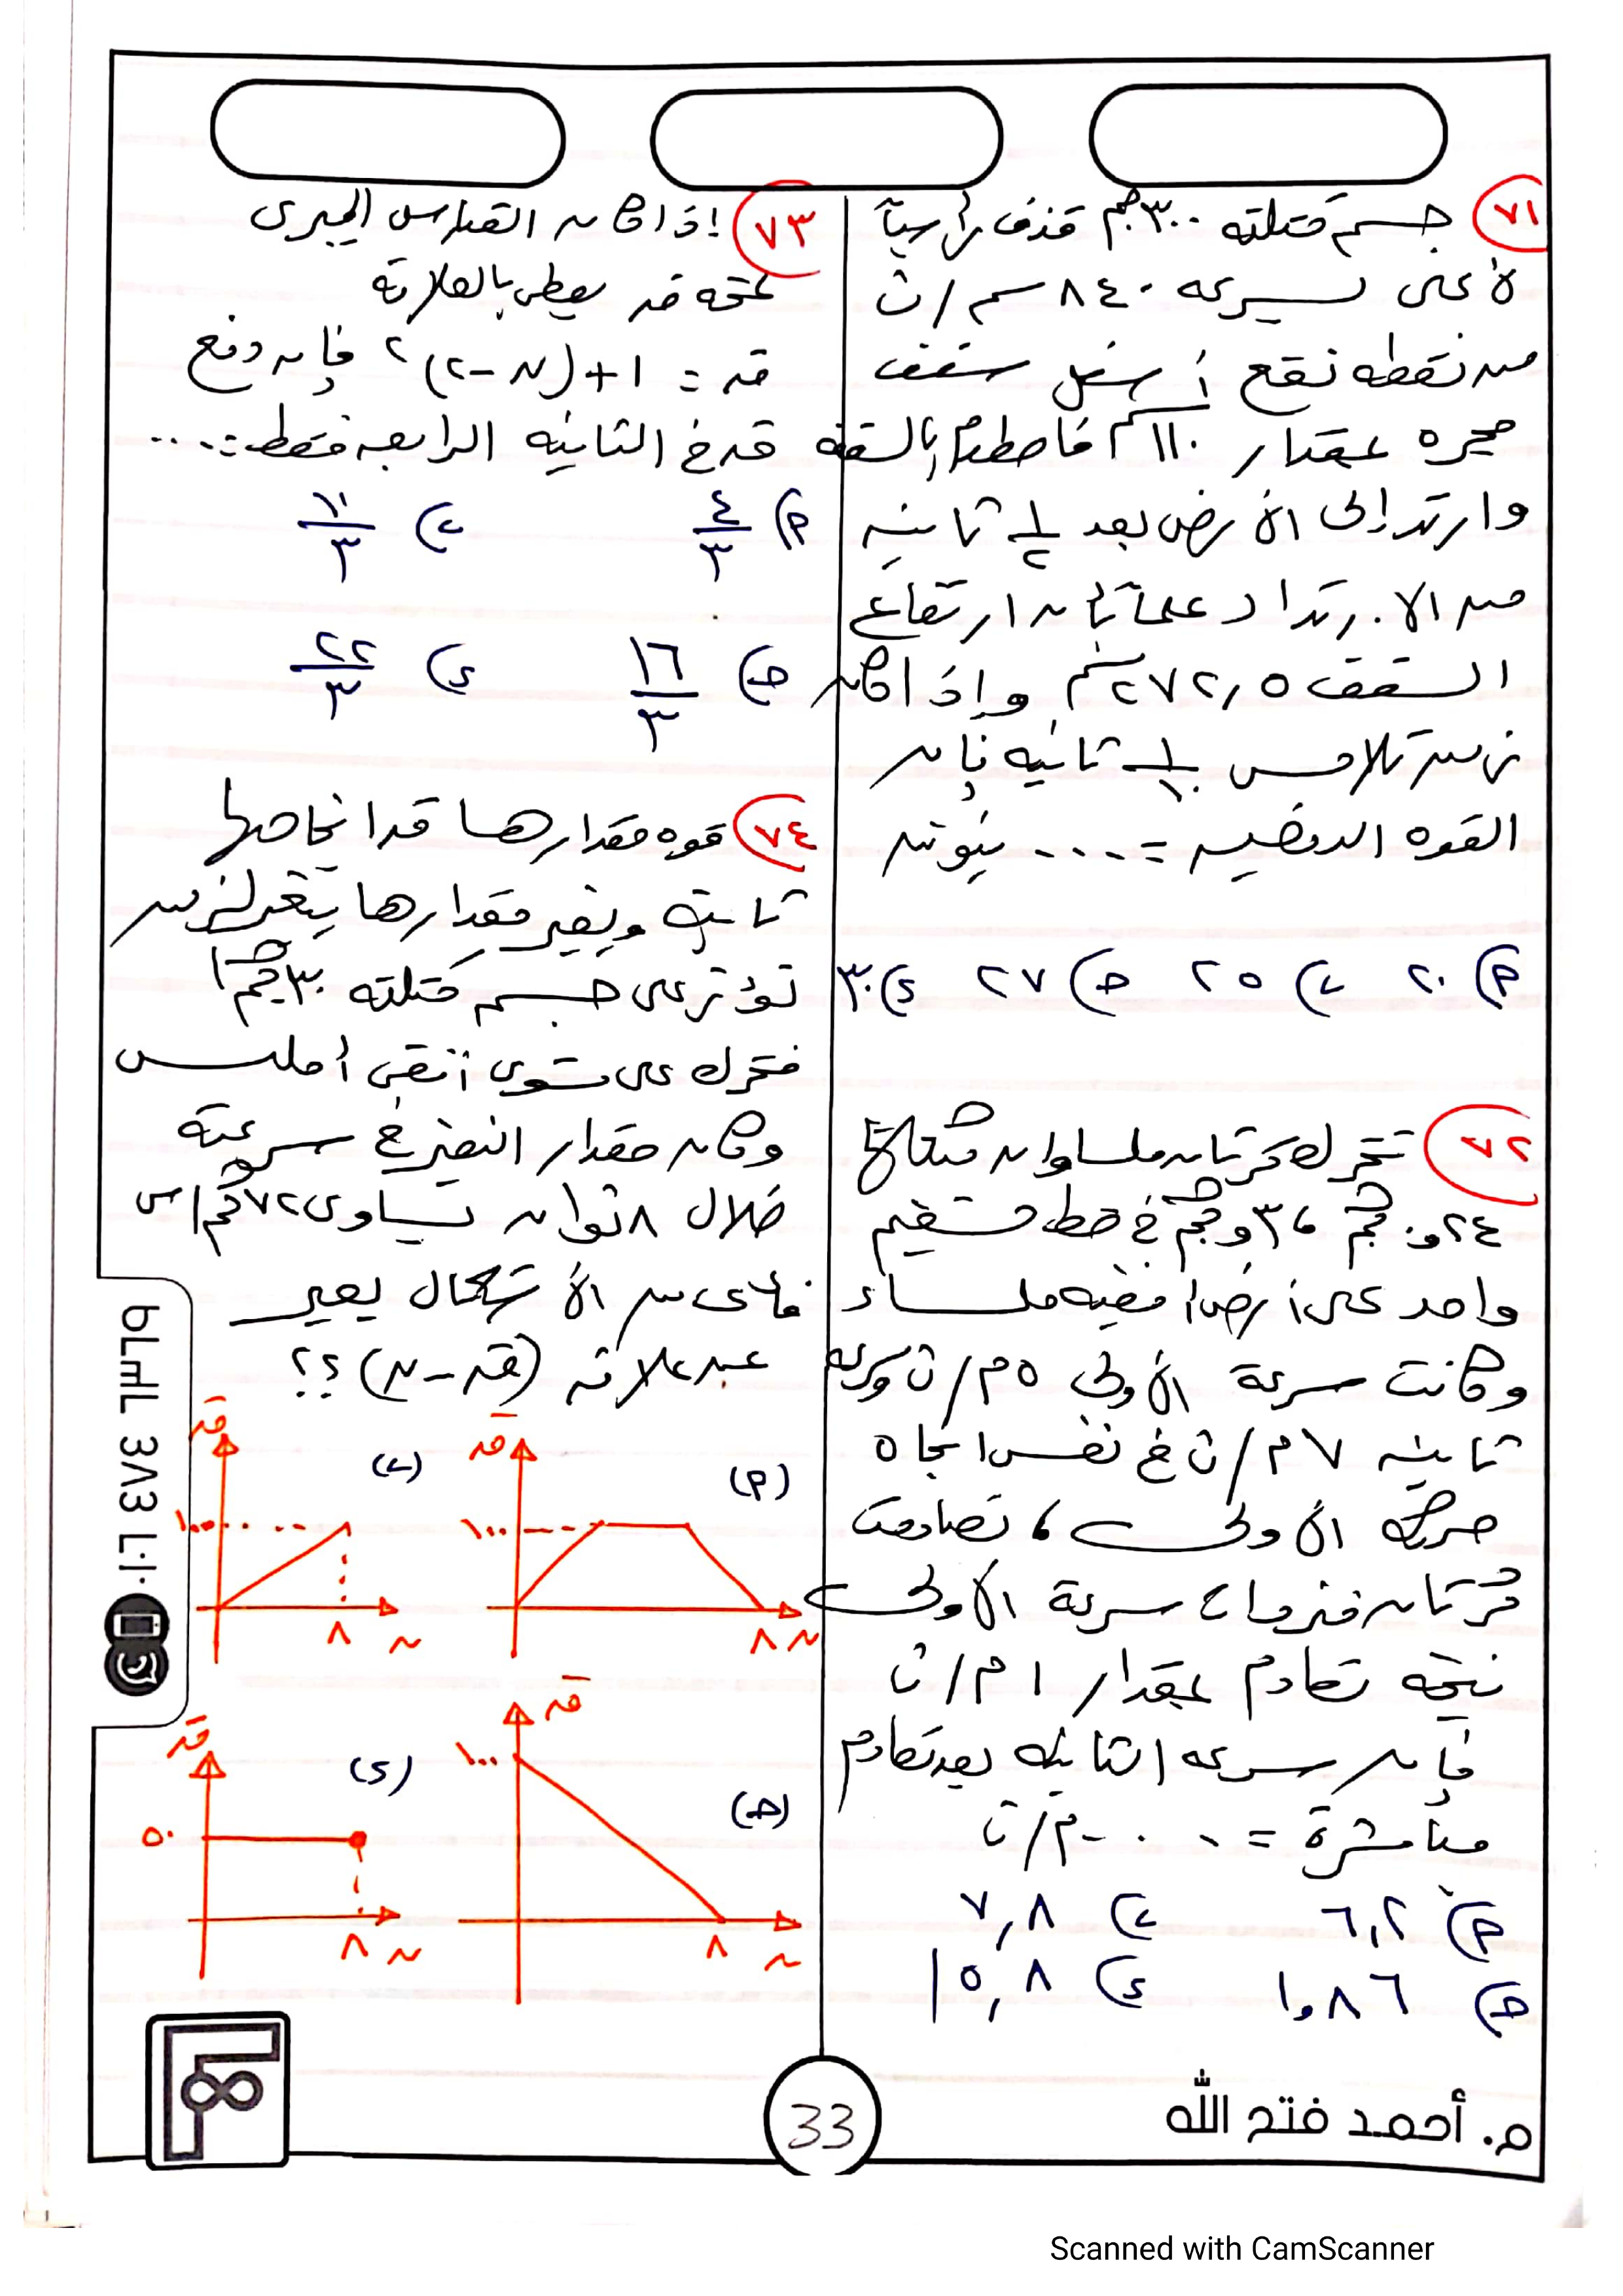 ٧١ جسم كتلته ٣٠٠ جم قذف رأسياً
لأعلى بسرعه ٨٤٠ سم/ث
من نقطه تقع أسفل سقف
حجره بمقدار ١١٠ سم فاصطدم بالسقف
وارتد إلى الأرض بعد ١/٢ ثانيه
من الارتداد علماً بأن ارتفاع
السقف ٢٧٢,٥ سم وإذا كان
زمن تلامس ١/١٠ ثانيه فإن
القوه الدفعيه = .... نيوتن
٢٠ (أ ٢٥ (ب ٢٧ (ج ٣٠ (د
٧٢ تتحرك كرتان ملساوان كتلتاهما
٢٤ و. كجم ، ٣ و كجم فى خط مستقيم
واحد على أرض أفقيه ملساء
وكانت سرعة الأولى ٥ م/ث وكره
ثانيه ٧ م/ث فى نفس اتجاه
حركة الأولى ، تصادمت
كرتان فزدات سرعة الأولى
نتيجه تصادم بمقدار ١ م/ث
فإن سرعه الثانيه بعد تصادم
مباشرة = .... م/ث
أ) ٦,٢ ب) ٧,٨
ج) ١,٨٦ د) ٥,٨
٧٣ إذا كان القياس الجبرى
لمتجه قد يعطى بالعلاقة
قد = ١ + (ن - ٢)٢ فإن دفع
قد فى الثانيه الرابعه فقط = ....
أ) ٤/٣ ب) ١١/٣
ج) ١٦/٣ د) ٢٢/٣
٧٤ قوه مقدارها قد اتجاهها
ثابته ويتغير مقدارها بتغير الزمن
تؤثر على جسم كتلته ٣٠ كجم
فتحرك على مستوى أفقى أملس
وكان مقدار التغير فى سرعته
خلال ٨ ثوان تساوى ٧٢ كم/س
فأى من الأشكال يعبر
عن علاقه (قد - ن) ؟؟
(أ) قد ١٠٠ ٨ ن
(ب) قد ١٠٠ ٨ ن
(ج) قد ١٠٠ ٨ ن
(د) قد ٥٠ ٨ ن
م. أحمد فتح الله
33
Scanned with CamScanner